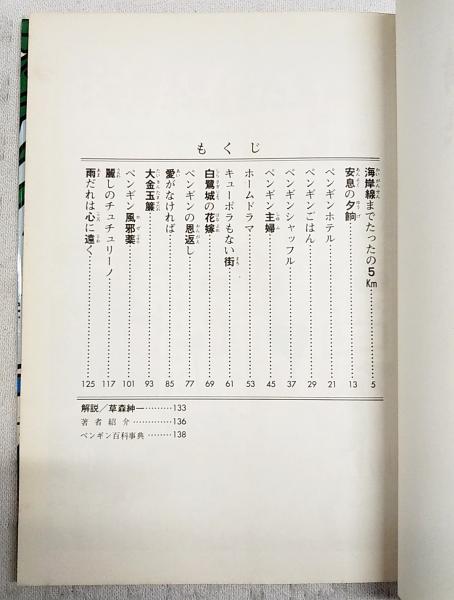 もくじ
海岸線までたったの5Km 5
安息の夕餉 13
ペンギンホテル 21
ペンギンごはん 29
ペンギンシャッフル 37
ペンギン主婦 45
ホームドラマ 53
キューポラもない街 61
白鷺城の花嫁 69
ペンギンの恩返し 77
愛がなければ 85
大金玉簾 93
ペンギン風邪薬 101
麗しのチュチュリーノ 117
雨だれは心に遠く 125
解説/草森紳一 133
著者紹介 136
ペンギン百科事典 138